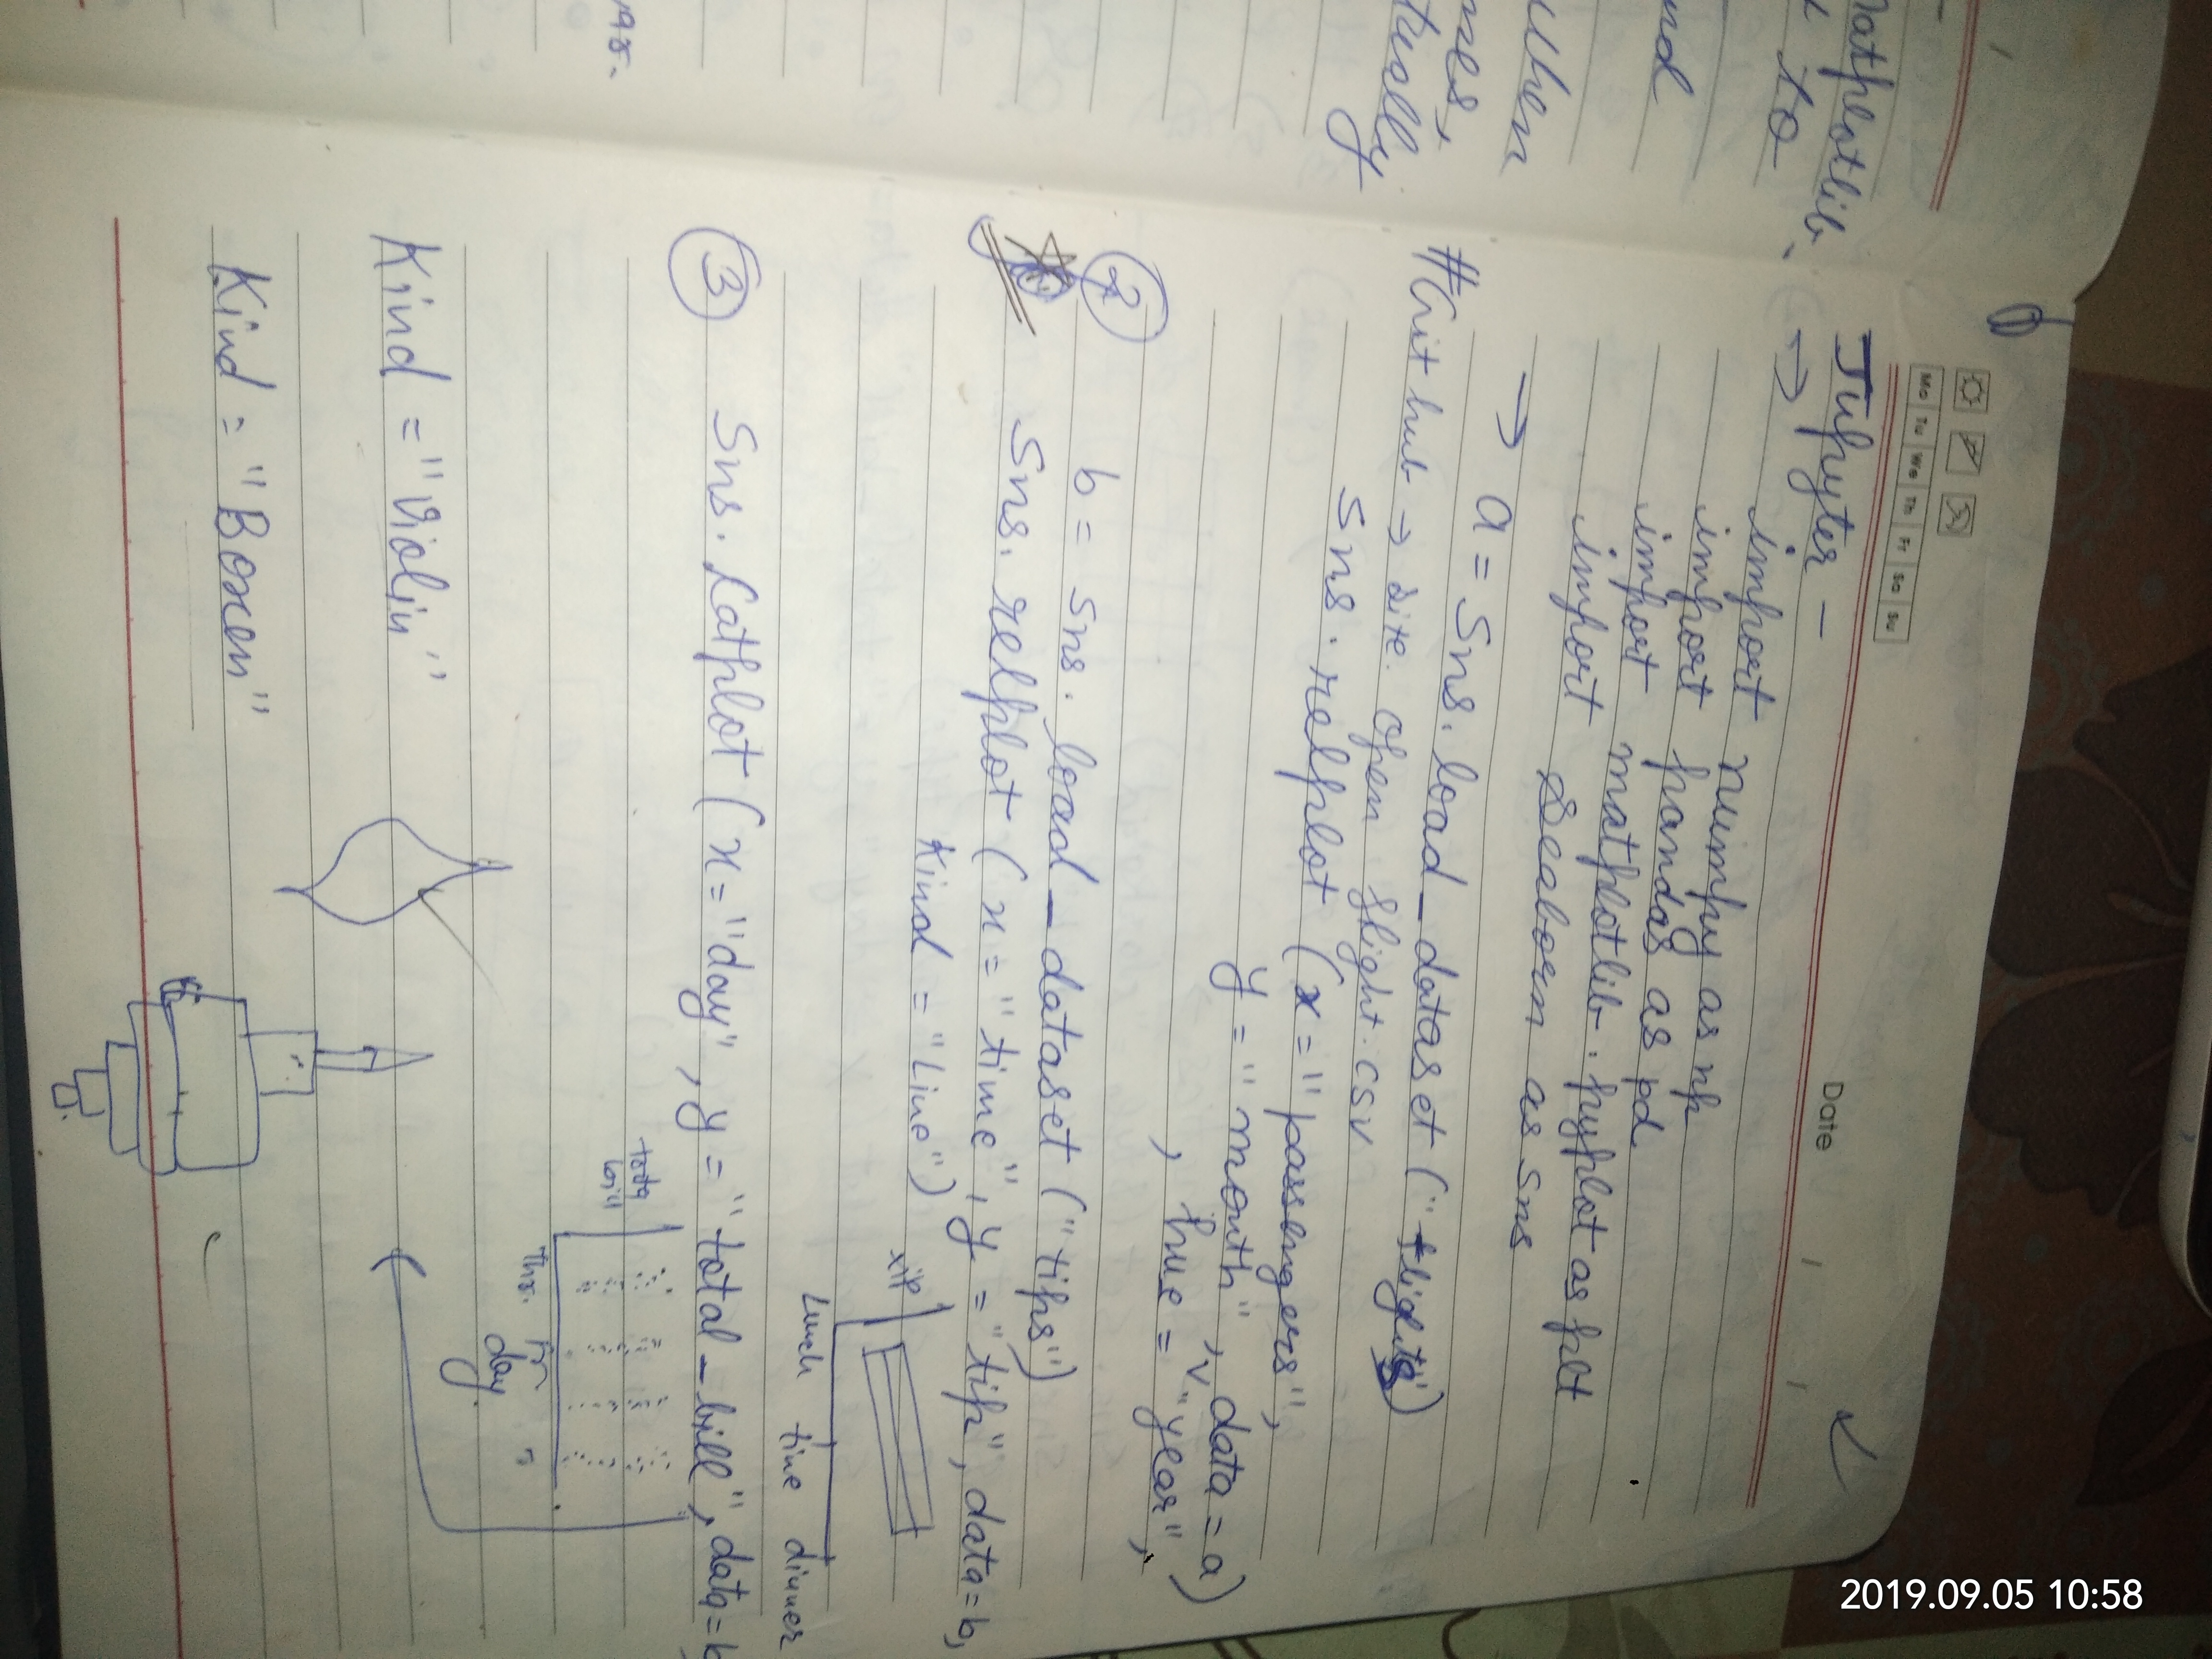 Mo Tu We Th Fr Sa Su
Date / /
Jupyter -
→ import numpy as np
import pandas as pd
import matplotlib.pyplot as plt
import Seaborn as sns
→ a = Sns.load_dataset ("flights")
#Git hub → site. open flight.csv
Sns.relplot (x = "passengers",
y = "month", data = a)
, hue = "year",
② b = sns.load_dataset ("tips")
Sns.relplot (x = "time", y = "tip", data=b,
Kind = "Line")
tip
Lunch time dinner
③ Sns.Catplot (x = "day", y = "total_bill", data=b
total
bill
Thr. Fri
day
Kind = "Violin"
Kind = "Boxen"
matplotlib.
to
nd
when
mes,
tically
2019.09.05 10:58